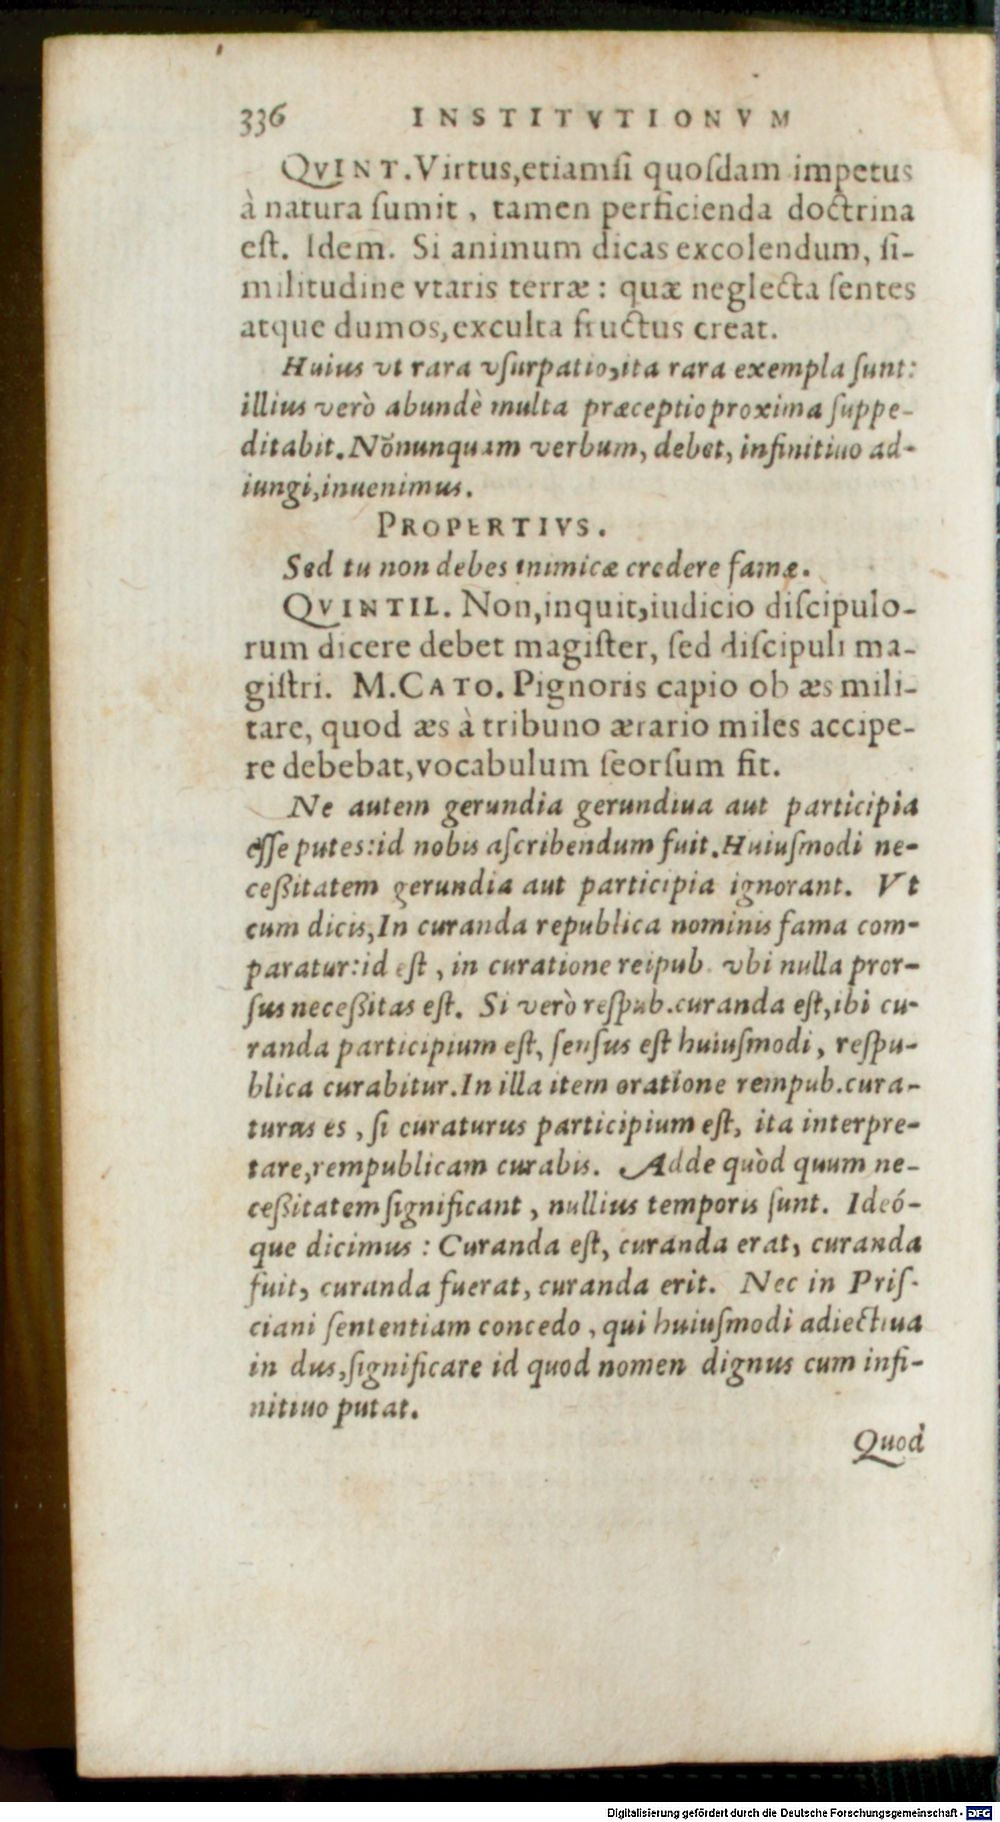 336 INSTITVTIONVM
QVINT. Virtus, etiamsi quosdam impetus
à natura sumit, tamen perficienda doctrina
est. Idem. Si animum dicas excolendum, si-
militudine vtaris terræ: quæ neglecta sentes
atque dumos, exculta fructus creat.
Huius vt rara vsurpatio, ita rara exempla sunt:
illius verò abundè multa præceptio proxima suppe-
ditabit. Nõnunquam verbum, debet, infinitiuo ad-
iungi, inuenimus.
PROPERTIVS.
Sed tu non debes inimicæ credere famæ.
QVINTIL. Non, inquit, iudicio discipulo-
rum dicere debet magister, sed discipuli ma-
gistri. M. CATO. Pignoris capio ob æs mili-
tare, quod æs à tribuno ærario miles accipe-
re debebat, vocabulum seorsum fit.
Ne autem gerundia gerundiua aut participia
esse putes: id nobis ascribendum fuit. Huiusmodi ne-
cessitatem gerundia aut participia ignorant. Vt
cum dicis, In curanda republica nominis fama com-
paratur: id est, in curatione reipub. vbi nulla pror-
sus necessitas est. Si verò respub. curanda est, ibi cu-
randa participium est, sensus est huiusmodi, respu-
blica curabitur. In illa item oratione rempub. cura-
turus es, si curaturus participium est, ita interpre-
tare, rempublicam curabis. Adde quòd quum ne-
cessitatem significant, nullius temporis sunt. Ideó-
que dicimus: Curanda est, curanda erat, curanda
fuit, curanda fuerat, curanda erit. Nec in Pris-
ciani sententiam concedo, qui huiusmodi adiectiua
in dus, significare id quod nomen dignus cum infi-
nitiuo putat.
Quod
Digitalisierung gefördert durch die Deutsche Forschungsgemeinschaft - DFG